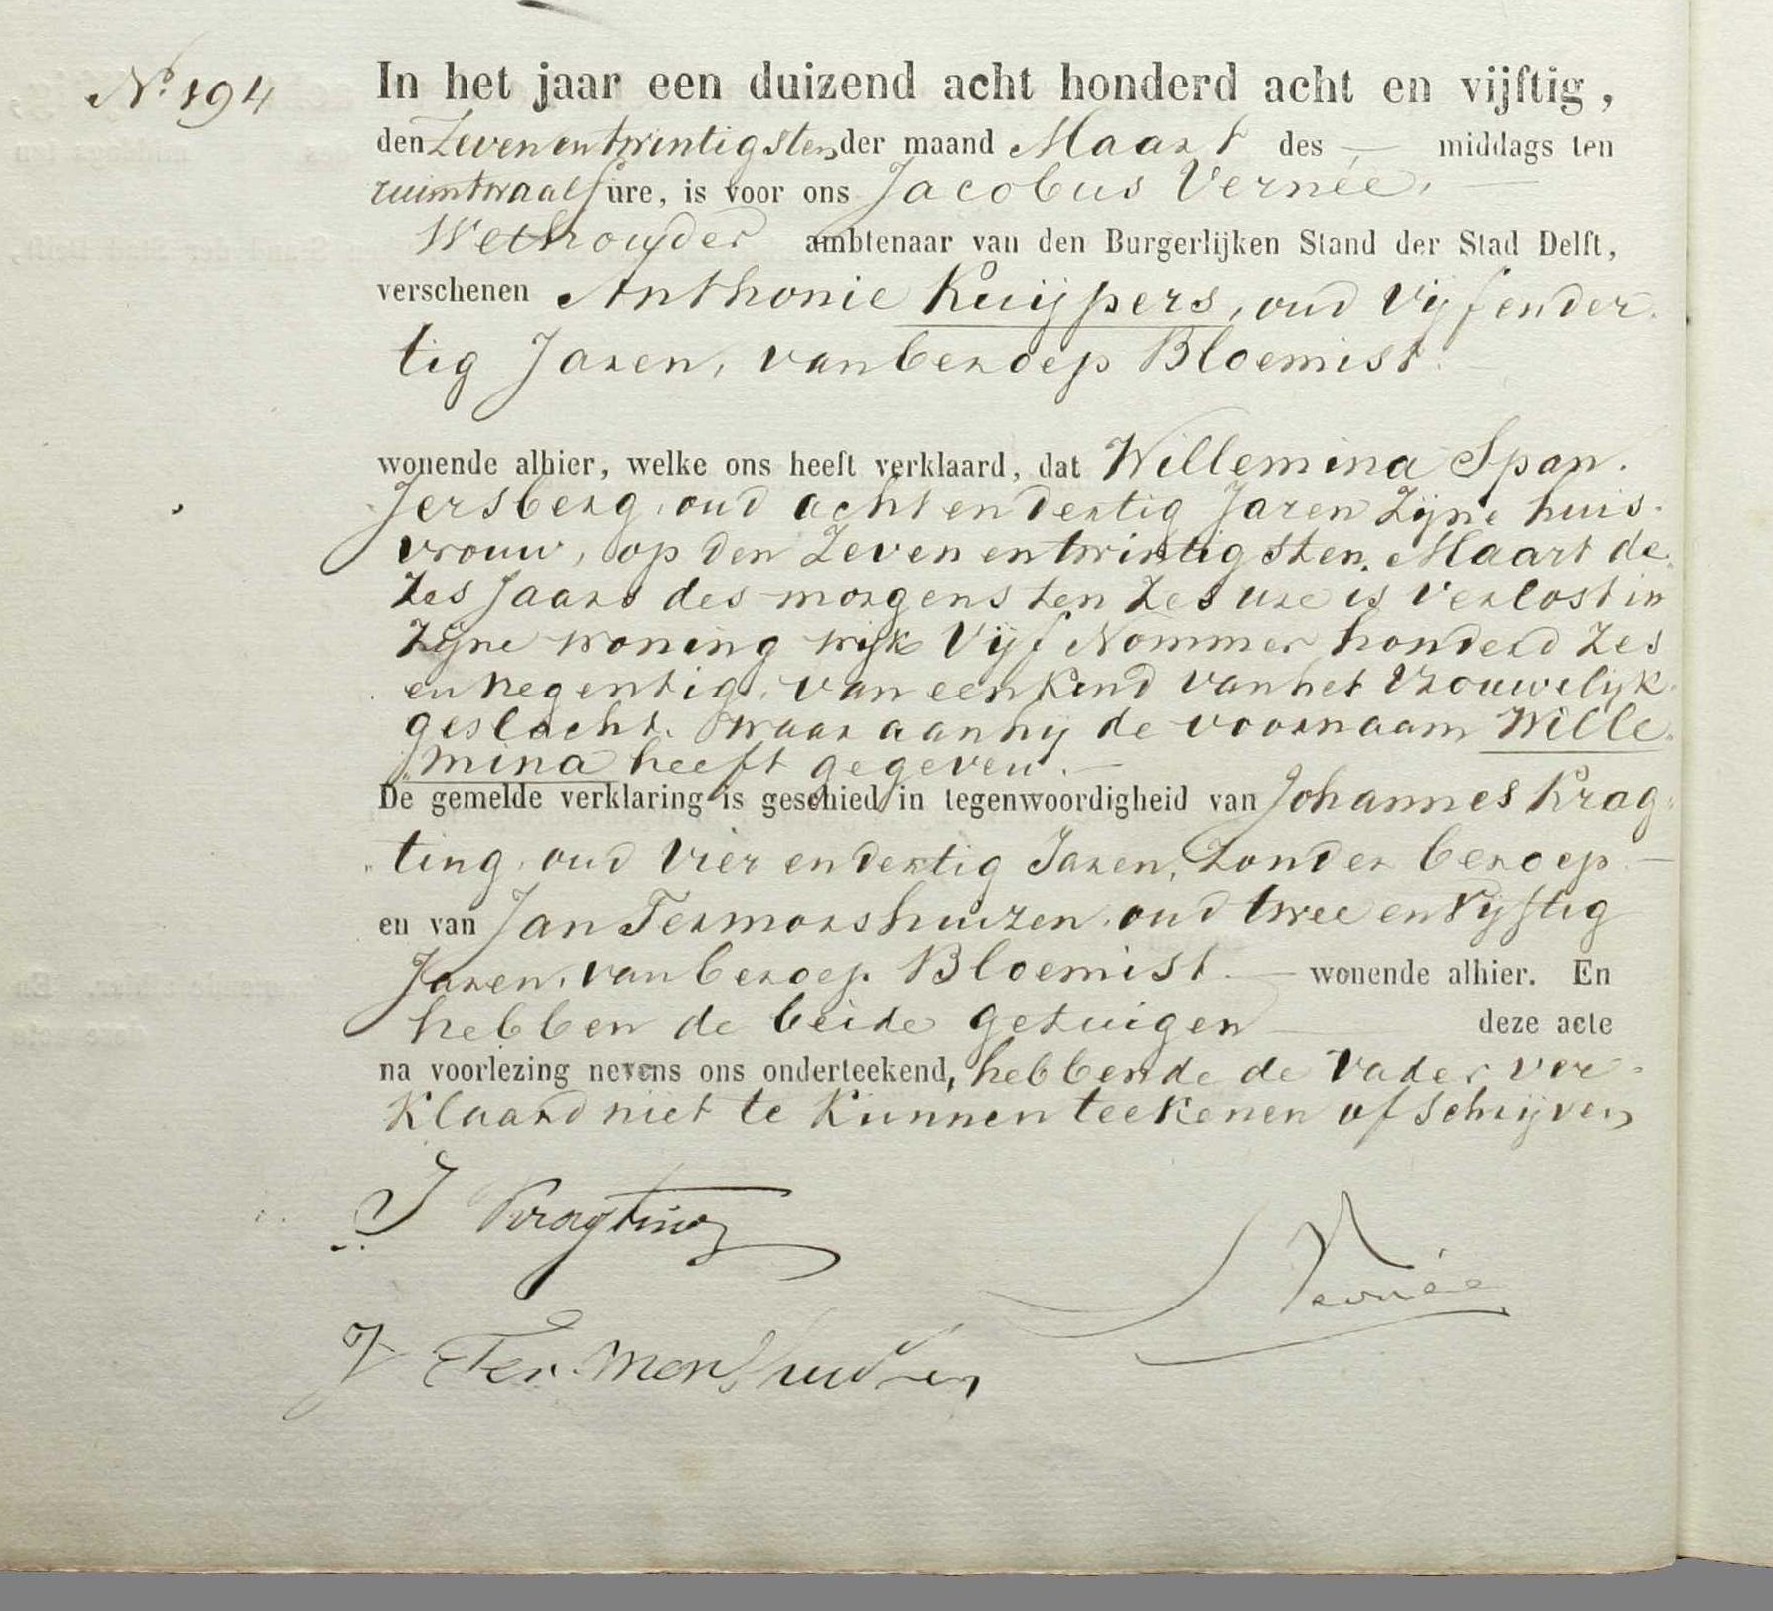 No. 194
In het jaar een duizend acht honderd acht en vijftig,
den Zevenentwintigsten der maand Maart des — middags ten
ruimtwaalf ure, is voor ons Jacobus Vernée,
Wethouder ambtenaar van den Burgerlijken Stand der Stad Delft,
verschenen Anthonie Kuijpers, oud Vijfender-
tig Jaren, van beroep Bloemist.
wonende alhier, welke ons heeft verklaard, dat Willemina Span-
Jersberg, oud acht en dertig Jaren Zijne huis-
vrouw, op den Zeven entwintigsten Maart de-
Zes Jaars des morgens ten Zes ure is Verlost in
Zijne woning wijk Vijf Nommer honderd Zes
en negentig, van een Kind van het Vrouwelijk
geslacht. waar aan hij de voornaam Wille-
mina heeft gegeven. —
De gemelde verklaring is geschied in tegenwoordigheid van Johannes Krag-
ting, oud Vier en dertig Jaren, Zonder beroep —
en van Jan Termorshuizen, oud twee en Vijftig
Jaren, van beroep Bloemist. — wonende alhier. En
hebben de beide getuigen — deze acte
na voorlezing nevens ons onderteekend, hebbende de Vader ver-
Klaard niet te Kunnen teekenen of schrijven
J Kragting
J Vernée
J Ter Morshuizen